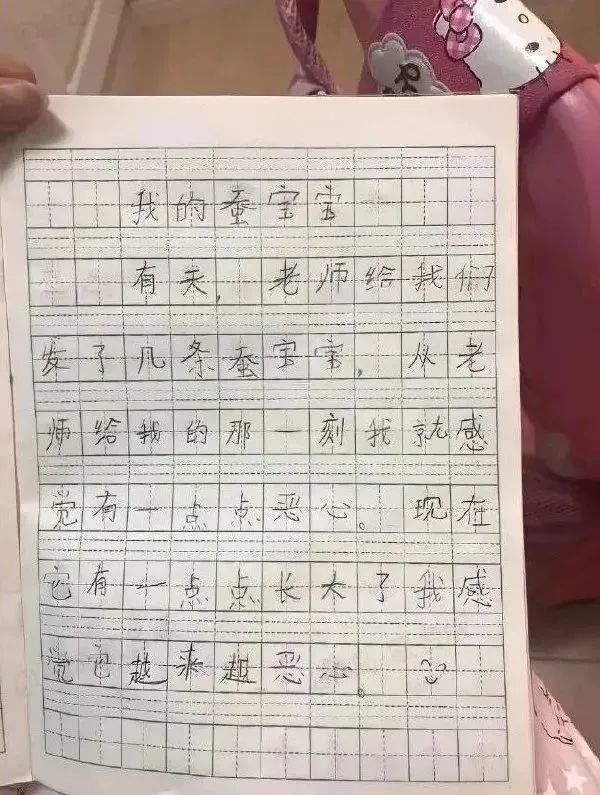 我的蚕宝宝
有天，老师给我们
发了几条蚕宝宝，从老
师给我的那一刻我就感
觉有一点点恶心。现在
它有一点点长大了我感
觉它越来越恶心。